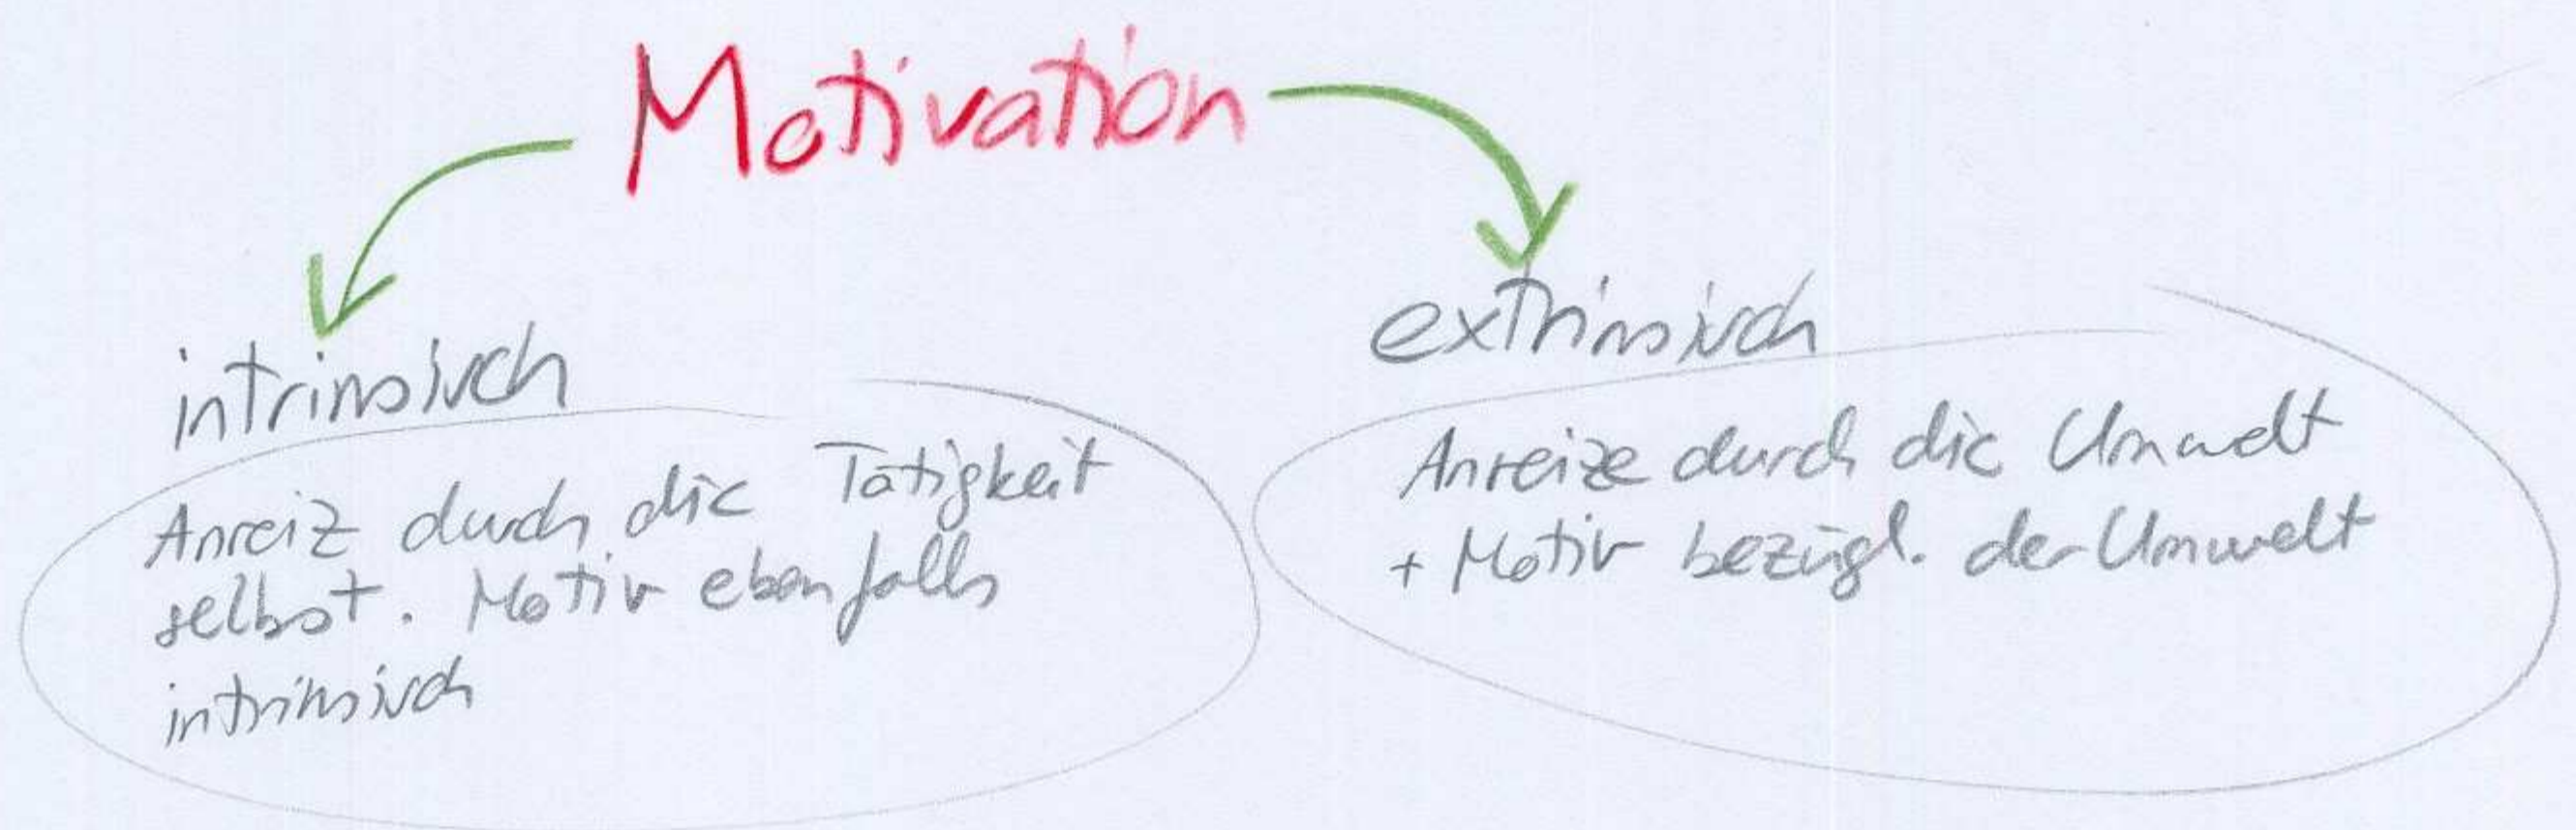 Motivation
intrinsisch
Anreiz durch die Tätigkeit
selbst. Motiv ebenfalls
intrinsisch
extrinsisch
Anreize durch die Umwelt
+ Motiv bezügl. der Umwelt